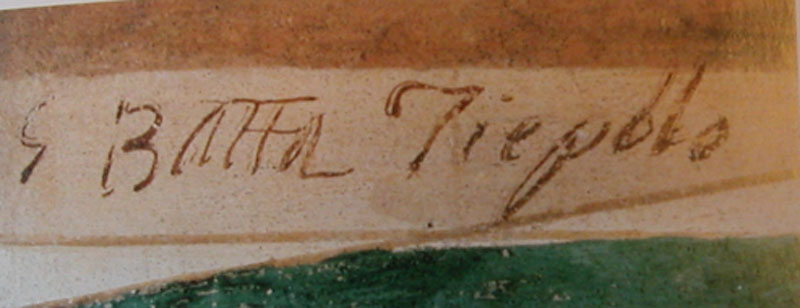 G BATTA Tiepolo